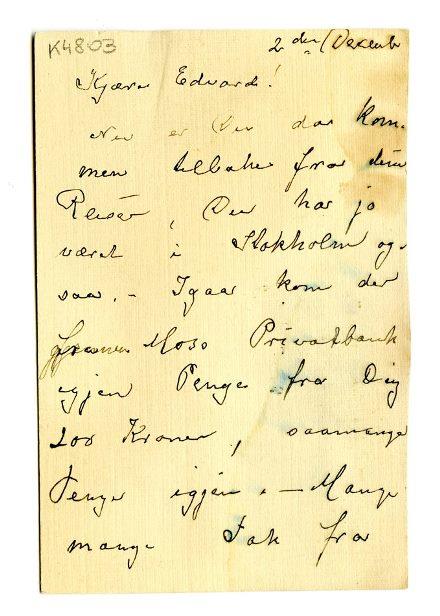 K4803
2den Decemb
Kjære Edvard!
Nu er Du da kom-
men tilbake fra din
Reise, Du har jo
været i Stokholm og-
saa. – Igaar kom der
fra Moss Privatbank
igjen Penge fra Dig
200 Kroner, saamange
Penge igjen. – Mange
mange Tak fra